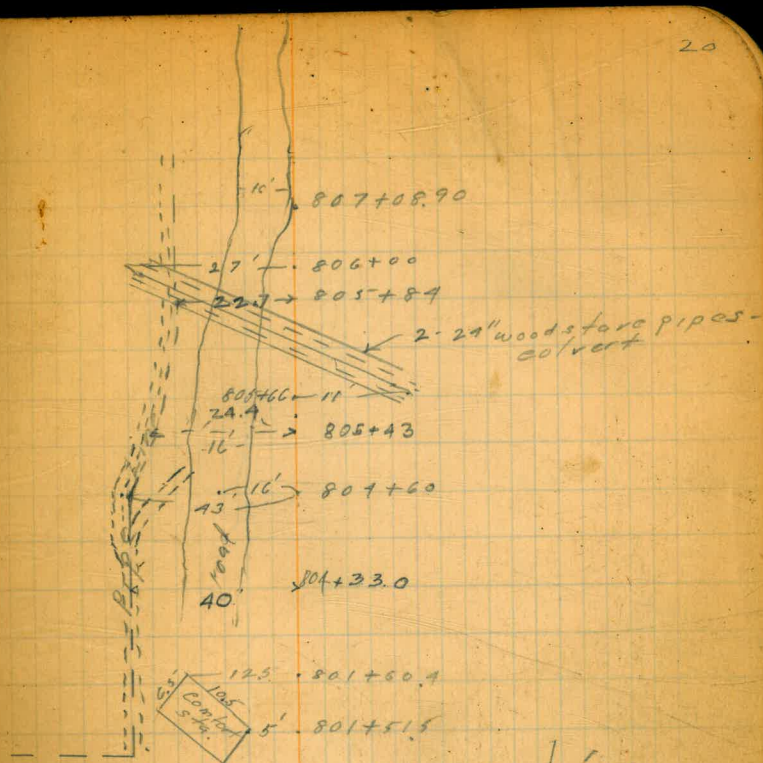 20
10' 807+08.90
27' 806+00
22.7 805+84
2-24" wood stave pipes -
colvert
805+66 11'
24.4
16' 805+43
16' 804+60
43'
road
Pipe
804+33.0
40'
12.5 801+60.4
5.5'
10.5
Comfort
sta.
5' 801+51.5